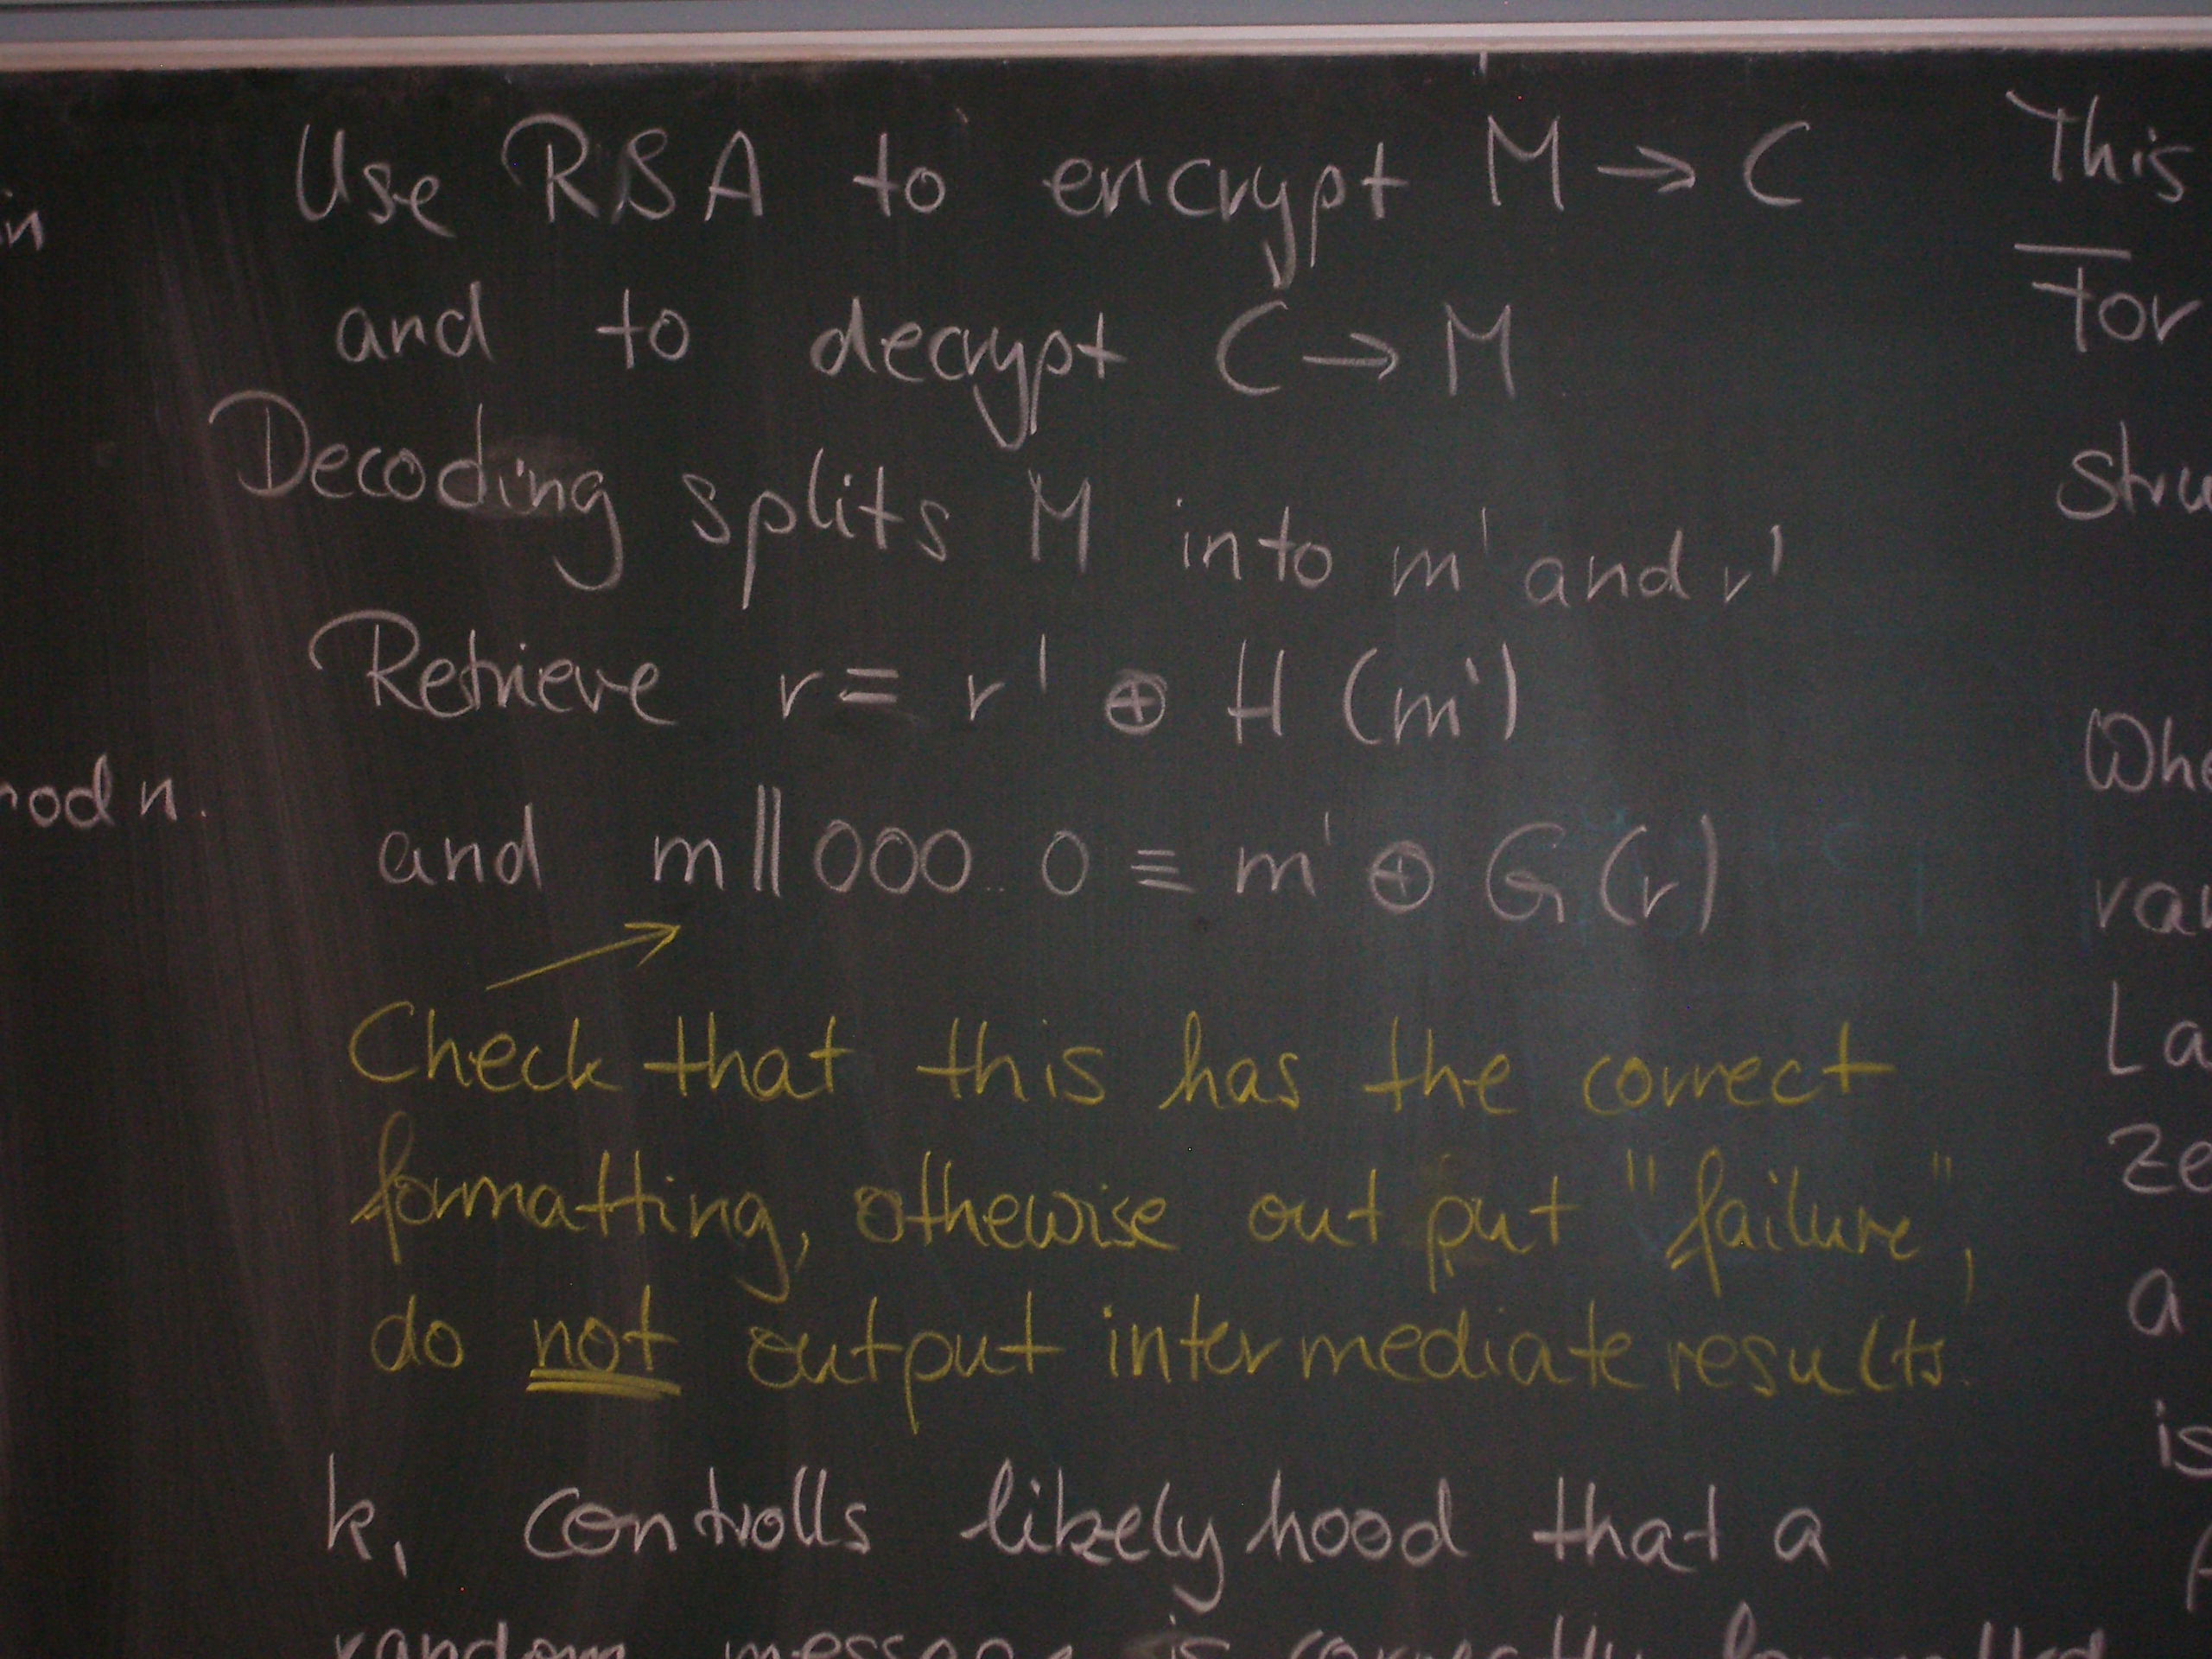 Use RSA to encrypt M → C
and to decrypt C → M
Decoding splits M into m' and r'
Retrieve r = r' ⊕ H (m')
and m || 000 .. 0 = m' ⊕ G (r)
Check that this has the correct
formatting, othewise out put "failure",
do not output intermediate results.
k₁ controlls likelyhood that a
random message is correctly formatted
in
mod n.
This
for
Whe
La
a
is